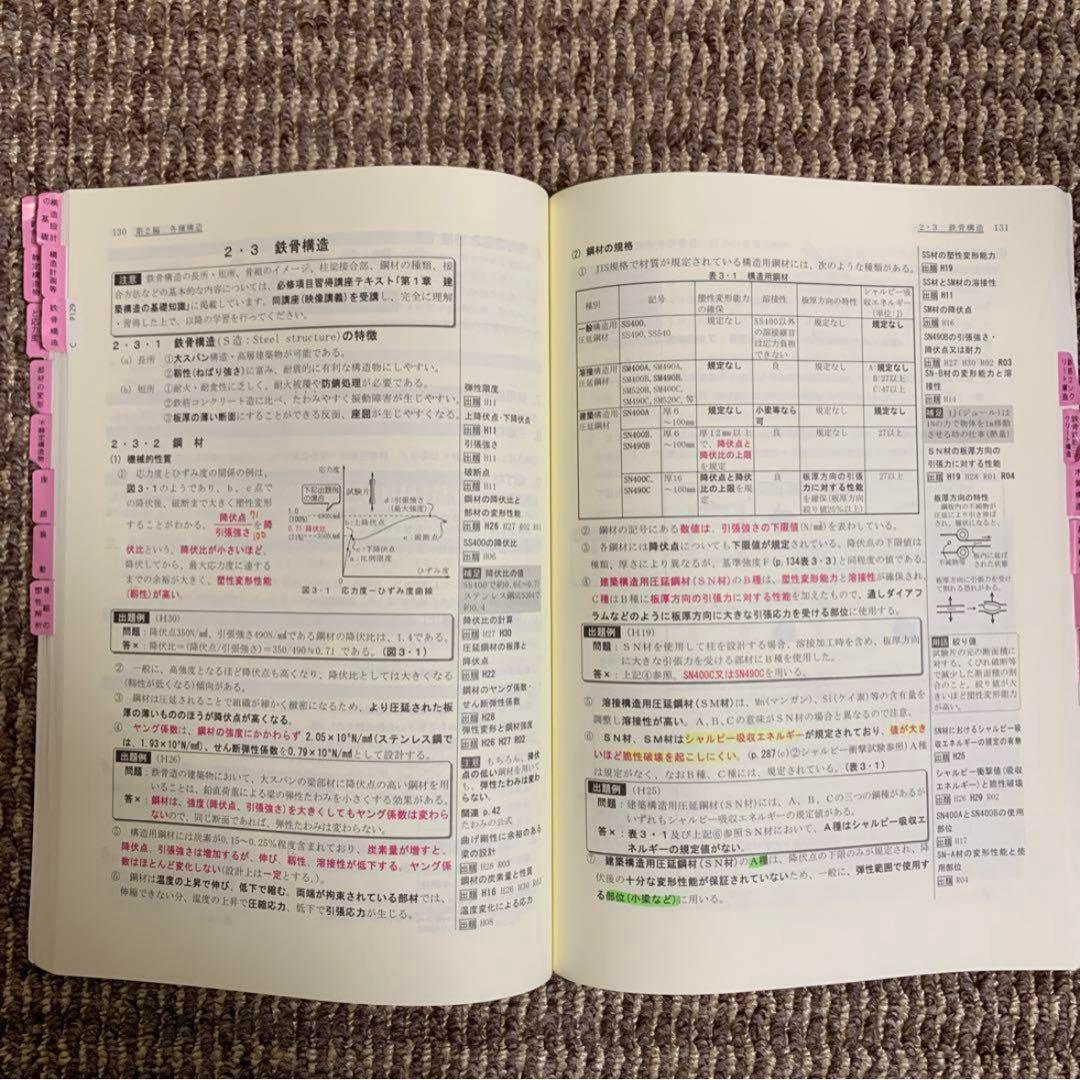 130 第2編 各種構造
2・3 鉄骨構造
注意 鉄骨構造の長所・短所、骨組のイメージ、柱梁接合部、鋼材の種類、接
合方法などの基本的な内容については、必修項目習得講座テキスト「第1章 建
築構造の基礎知識」に掲載しています。同講座(映像講義)を受講し、完全に理解
・習得した上で、以降の学習を行ってください。
2・3・1 鉄骨構造(S造:Steel structure)の特徴
(a) 長所 ①大スパン構造・高層建築物が可能である。
②靱性(ねばり強さ)に富み、耐震的に有利な構造物にしやすい。
(b) 短所 ①耐火・耐食性に乏しく、耐火被覆や防錆処理が必要である。
②鉄筋コンクリート造に比べ、たわみやすく振動障害が生じやすい。
③板厚の薄い断面にすることができる反面、座屈が生じやすくなる。
2・3・2 鋼 材
(1) 機械的性質
① 応力度とひずみ度の関係の例は、
図3・1のようであり、b、c点で
の降伏後、破断まで大きく塑性変形
することがわかる。降伏点/引張強さを降
71
100
伏比という。降伏比が小さいほど、
降伏してから、最大応力度に達する
までの余裕が大きく、塑性変形性能
(靱性)が高い。
応力度
下記出題例
の場合
試験片
1.0
(100%)
→490N/㎟
0.71 降伏比
(71%)
→350N/㎟
d:引張強さ
(最大強度)
b:上降伏点
e:破断点
c:下降伏点
a:比例限度
ひずみ度
図3・1 応力度−ひずみ度曲線
出題例 (H30)
問題:降伏点350N/㎟、引張強さ490N/㎟である鋼材の降伏比は、1.4である。
答×:降伏比=(降伏点/引張強さ)=350/490≒0.71 である。(図3・1)
② 一般に、高強度となるほど降伏点も高くなり、降伏比としては大きくなる
(靱性が低くなる)傾向がある。
③ 鋼材は圧延されることで組織が細かく緻密になるため、より圧延された板
厚の薄いもののほうが降伏点が高くなる。
④ ヤング係数は、鋼材の強度にかかわらず 2.05×10⁵N/㎟(ステンレス鋼で
は、1.93×10⁵N/㎟)、せん断弾性係数を0.79×10⁵N/㎟として設計する。
出題例 (H26)
問題:鉄骨造の建築物において、大スパンの梁部材に降伏点の高い鋼材を用
いることは、鉛直荷重による梁の弾性たわみを小さくする効果がある。
答×:鋼材は、強度(降伏点、引張強さ)を大きくしてもヤング係数は変わら
ないので、同じ断面であれば、弾性たわみは変わらない。
⑤ 構造用鋼材には炭素が0.15〜0.25%程度含まれており、炭素量が増すと、
降伏点、引張強さは増加するが、伸び、靱性、溶接性が低下する。ヤング係
数はほとんど変化しない(設計上は一定とする。)。
⑥ 鋼材は温度の上昇で伸び、低下で縮む。両端が拘束されている部材では、
伸縮できない分、温度の上昇で圧縮応力、低下で引張応力が生じる。
弾性限度
出題 H11
上降伏点・下降伏点
出題 H11
引張強さ
出題 H11
破断点
出題 H11
鋼材の降伏比と
部材の変形性能
出題 H26 H27 R02
SS400の降伏比
出題 H06
補足 降伏比の値
SS400で約0.6(〜0.7)
ステンレス鋼SUS304で
約0.4
降伏比の計算
出題 H27 H30
圧延鋼材の板厚と
降伏点
出題 H22
鋼材のヤング係数・
せん断弾性係数
出題 H28
弾性変形と鋼材強度
出題 H26 H27 R02
注意 もちろん、降伏
点の低い鋼材を用いて
も、弾性たわみは変わ
らない。
関連 p.42
たわみの公式
曲げ剛性に余裕のある
梁の設計
出題 H28 R03
鋼材の炭素量と性質
出題 H16 H26 H30
温度変化による応力
出題 H08
2・3 鉄骨構造 131
(2) 鋼材の規格
① JIS規格で材質が規定されている構造用鋼材には、次のような種類がある。
表3・1 構造用鋼材
種別 記号 塑性変形能力の確保 溶接性 板厚方向の特性 シャルピー吸収エネルギー(単位:J)
一般構造用圧延鋼材 SS400, SS490, SS540 規定なし SS400以外の溶接継目は応力負担できない 規定なし 規定なし
溶接構造用圧延鋼材 SM400A, SM490A, SM400B, SM490B, SM520B, SM400C, SM490C, SM520C, 等 規定なし 良 規定なし A:規定なし B:27以上 C:47以上
建築構造用圧延鋼材 SN400A 厚6〜100㎜ 規定なし 小梁等なら可 規定なし 規定なし
SN400B, SN490B 厚6〜100㎜ 厚12㎜以上で、降伏点と降伏比の上限を規定 良 規定なし 27以上
SN400C, SN490C 厚16〜100㎜ 降伏点と降伏比の上限を規定 良 板厚方向の引張力に対する性能を確保(板厚方向絞り値25%以上) 27以上
② 鋼材の記号にある数値は、引張強さの下限値(N/㎟)を表わしている。
③ 各鋼材には降伏点についても下限値が規定されている。降伏点の下限値は
種類、厚さにより異なるが、基準強度F(p.134表3・3)と同程度の値である。
④ 建築構造用圧延鋼材(SN材)のB種は、塑性変形能力と溶接性が確保され、
C種はB種に板厚方向の引張力に対する性能を加えたもので、通しダイアフ
ラムなどのように板厚方向に大きな引張応力を受ける部位に使用する。
出題例 (H19)
問題:SN材を使用して柱を設計する場合、溶接加工時を含め、板厚方向
に大きな引張力を受ける部材にB種を使用した。
答×:上記④参照。SN400C又はSN490Cを用いる。
⑤ 溶接構造用圧延鋼材(SM材)は、Mn(マンガン)、Si(ケイ素)等の含有量を
調整し溶接性が高い。A、B、Cの意味がSN材の場合と異なるので注意。
⑥ SN材、SM材はシャルピー吸収エネルギーが規定されており、値が大き
いほど脆性破壊を起こしにくい。(p.287(c)②シャルピー衝撃試験参照)A種
は規定がなく、なおB種、C種には、規定されている。(表3・1)
出題例 (H25)
問題:建築構造用圧延鋼材(SN材)には、A、B、Cの三つの鋼種があるが
いずれもシャルピー吸収エネルギーの規定値がある。
答×:表3・1及び上記⑥参照SN材において、A種はシャルピー吸収エ
ネルギーの規定値がない。
⑦ 建築構造用圧延鋼材(SN材)のA種は、降伏点の下限のみが規定され、降
伏後の十分な変形性能が保証されていないため、一般に、弾性範囲で使用す
る部位(小梁など)に用いる。
SS材の塑性変形能力
出題 H19
SS材とSM材の溶接性
出題 H11
SM材の降伏点
出題 H16
SN490Bの引張強さ・
降伏点又は耐力
出題 H27 H30 R02 R03
SN-B材の変形能力と溶
接性
出題 H14
補足 1J(ジュール)は
1Nの力で物体を1m移動
させる時の仕事(熱量)
SN材の板厚方向の
引張力に対する性能
出題 H19 H28 R01 R04
板厚方向の特性
鋼板内の不純物が
圧延により引き伸ば
され、層状になると、
不純物等
板内に延ば
された状態
板厚方向に引張力を受け
て割れる恐れがある。
用語 絞り値
試験片の元の断面積に
対する、くびれ破断等
で減少した断面積の割
合のこと。絞り値が大
きいほど塑性変形能力
が高い。
SN材におけるシャルピー吸
収エネルギーの規定の有無
出題 H25
シャルピー衝撃値(吸収
エネルギー)と脆性破壊
出題 H26 H29 R02
SN400AとSN400Bの使用
部位
出題 H17
SN-A材の変形性能と使
用部位
出題 R04
構造設計の基礎
構造計画等
静定構造物
鉄骨構造
と応力度
部材の変形
不静定構造物
座屈
振動
骨組の塑性解析
鉄筋コンクリート構造